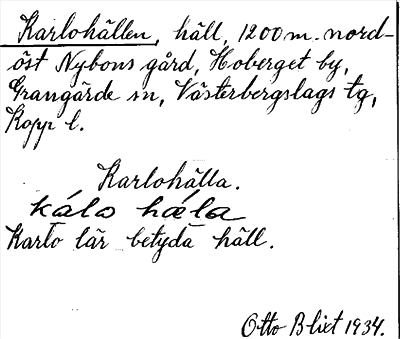 Karlohällen, häll, 1200 m. nord-
öst Nybons gård, Hoberget by,
Grangärde sn, Västerbergslags tg,
Kopp l.
Karlohälla.
kálo hæla
Karlo lär betyda häll.
Otto Blixt 1934.